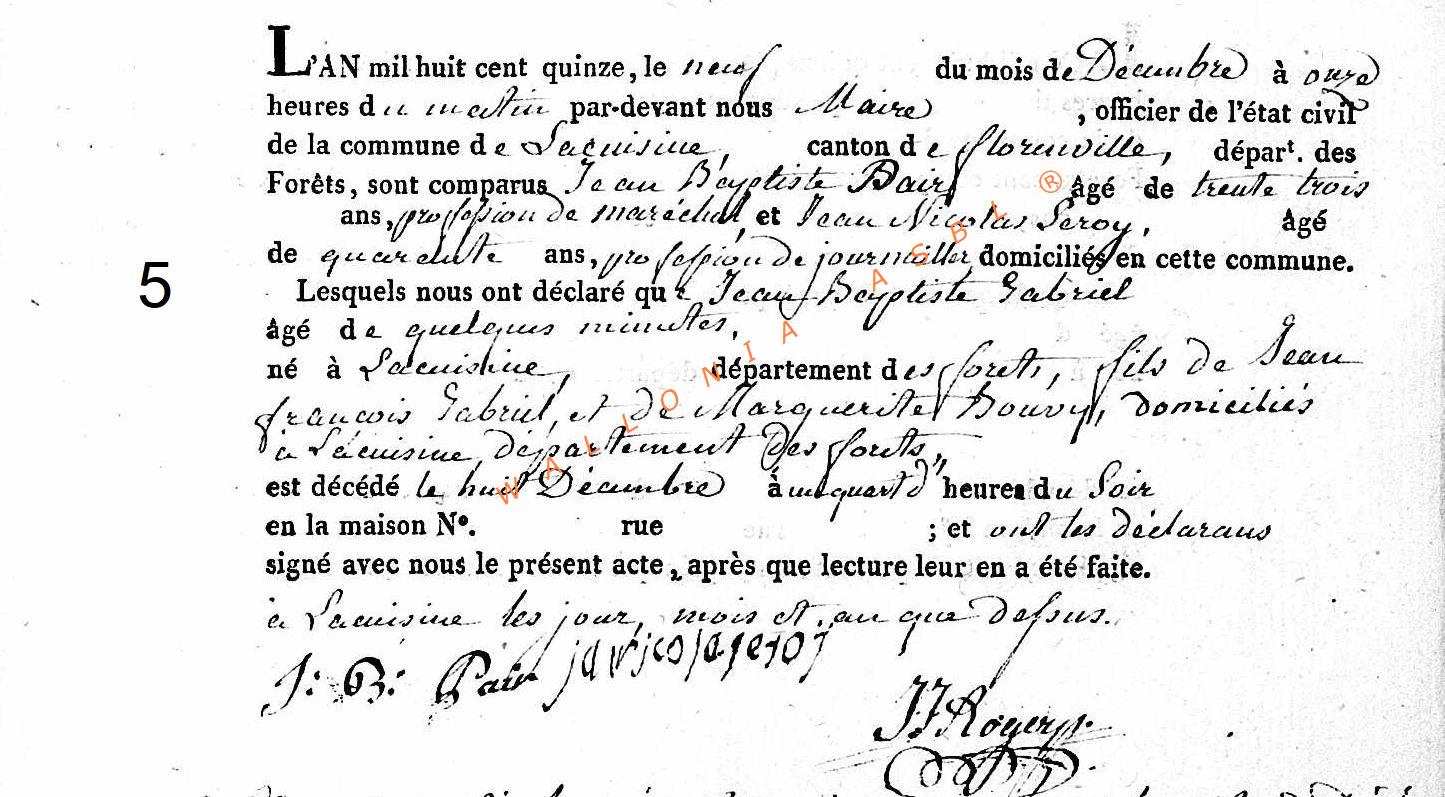 L'AN mil huit cent quinze, le neuf du mois de Décembre à onze
heures du matin par-devant nous Maire , officier de l'état civil
de la commune de Lacuisine, canton de florenville, départ. des
Forêts, sont comparus Jean Baptiste Pair âgé de trente trois
ans, profession de maréchal, et Jean Nicolas Leroy, âgé
de quarente ans, profession de journailler domiciliés en cette commune.
5
Lesquels nous ont déclaré que Jean Baptiste Gabriel
âgé de quelques minutes,
né à Lacuisine, département des forets, fils de Jean
françois Gabriel, et de Marguerite Bouvy, domiciliés
à Lacuisine département des forets,
est décédé le huit Décembre à un quart d' heures du Soir
en la maison N°. rue ; et ont les déclarans
signé avec nous le présent acte, après que lecture leur en a été faite.
à Lacuisine les jour, mois et an que dessus.
J: B: Pair
WALLONIA ASBL ®